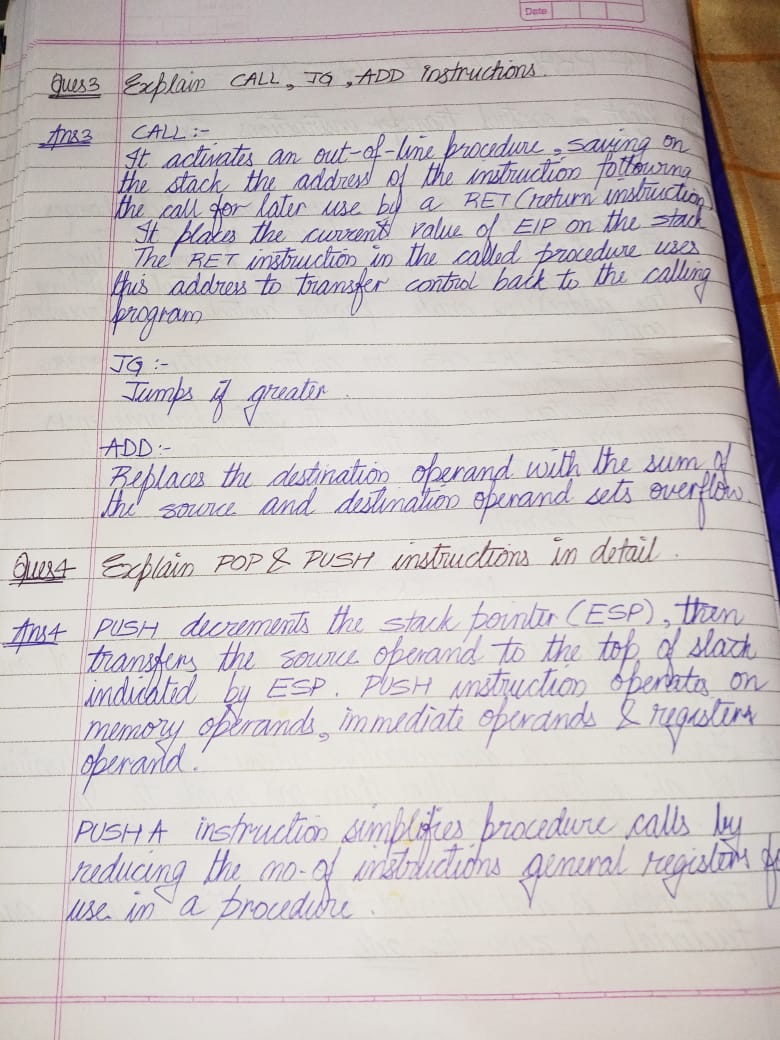 Date
Ques3 Explain CALL, JG, ADD instructions.
Ans3 CALL :-
It activates an out-of-line procedure, saving on
the stack the address of the instruction following
the call for later use by a RET (return instruction)
It places the current value of EIP on the stack
The RET instruction in the called procedure uses
this address to transfer control back to the calling
program
JG :-
Jumps if greater.
ADD :-
Replaces the destination operand with the sum of
the source and destination operand sets overflow.
Ques4 Explain POP & PUSH instructions in detail.
Ans4 PUSH decrements the stack pointer (ESP), then
transfers the source operand to the top of stack
indicated by ESP. PUSH instruction operates on
memory operands, immediate operands & registers
operand.
PUSHA instruction simplifies procedure calls by
reducing the no. of instructions general registers
use in a procedure.